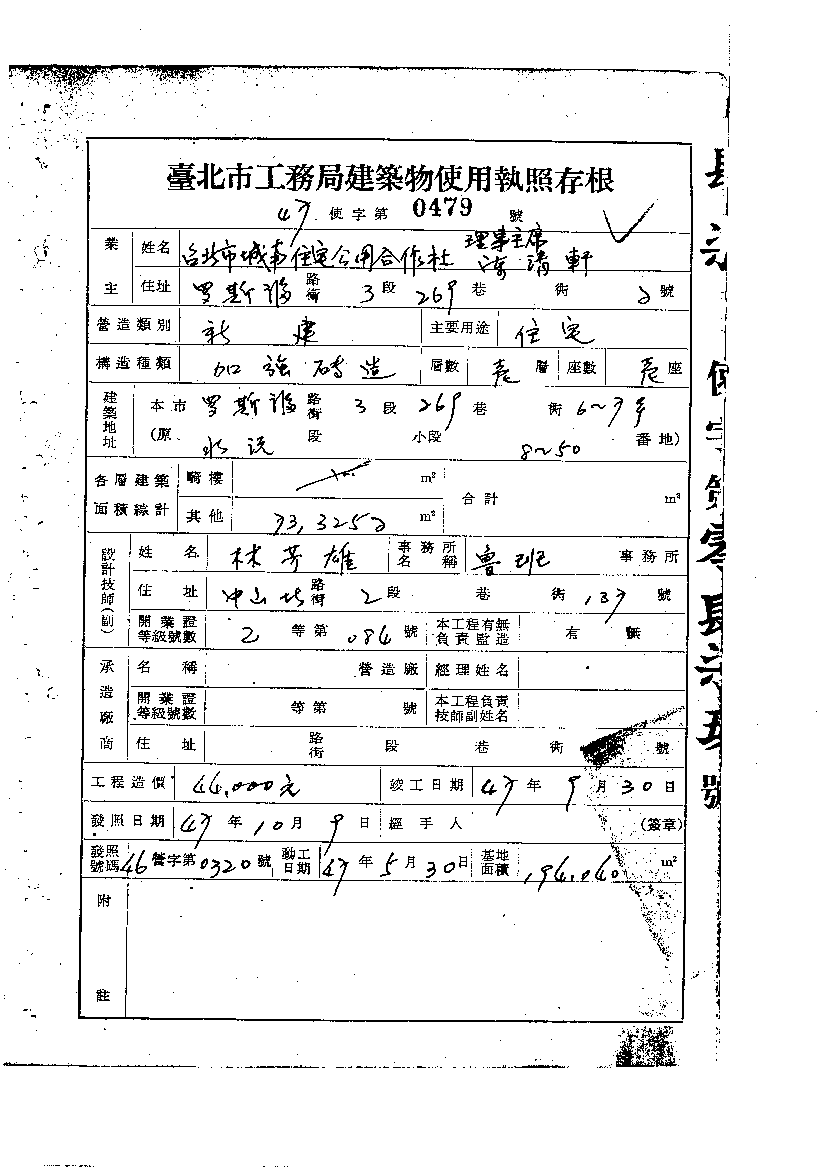 臺北市工務局建築物使用執照存根
47 使字第 0479 號
業主 姓名 台北市城市住宅公用合作社 理事主席 清軒
住址 罗斯福 路街 3 段 269 巷 街 2 號
營造類別 新建 主要用途 住宅
構造種類 加強磚造 層數 壱 層 座數 壱 座
建築地址 本市 罗斯福 路街 3 段 269 巷 街 6~7 号
(原 水沅 段 小段 8~50 番地)
各層建築面積綜計 騎樓 m² 合計 m²
其他 73,3252 m²
設計技師(副) 姓名 林芳雄 事務所名稱 魯班 事務所
住址 中山北 路街 2 段 巷 街 137 號
開業證等級號數 2 等第 084 號 本工程有無負責監造 有 無
承造廠商 名稱 營造廠 經理姓名
開業證等級號數 等第 號 本工程負責技師副姓名
住址 路街 段 巷 街 號
工程造價 44,000元 竣工日期 47 年 9 月 30 日
發照日期 47 年 10 月 9 日 經手人 (簽章)
發照號碼 46 營字第 0320 號 動工日期 47 年 5 月 30 日 基地面積 194.040 m²
附註